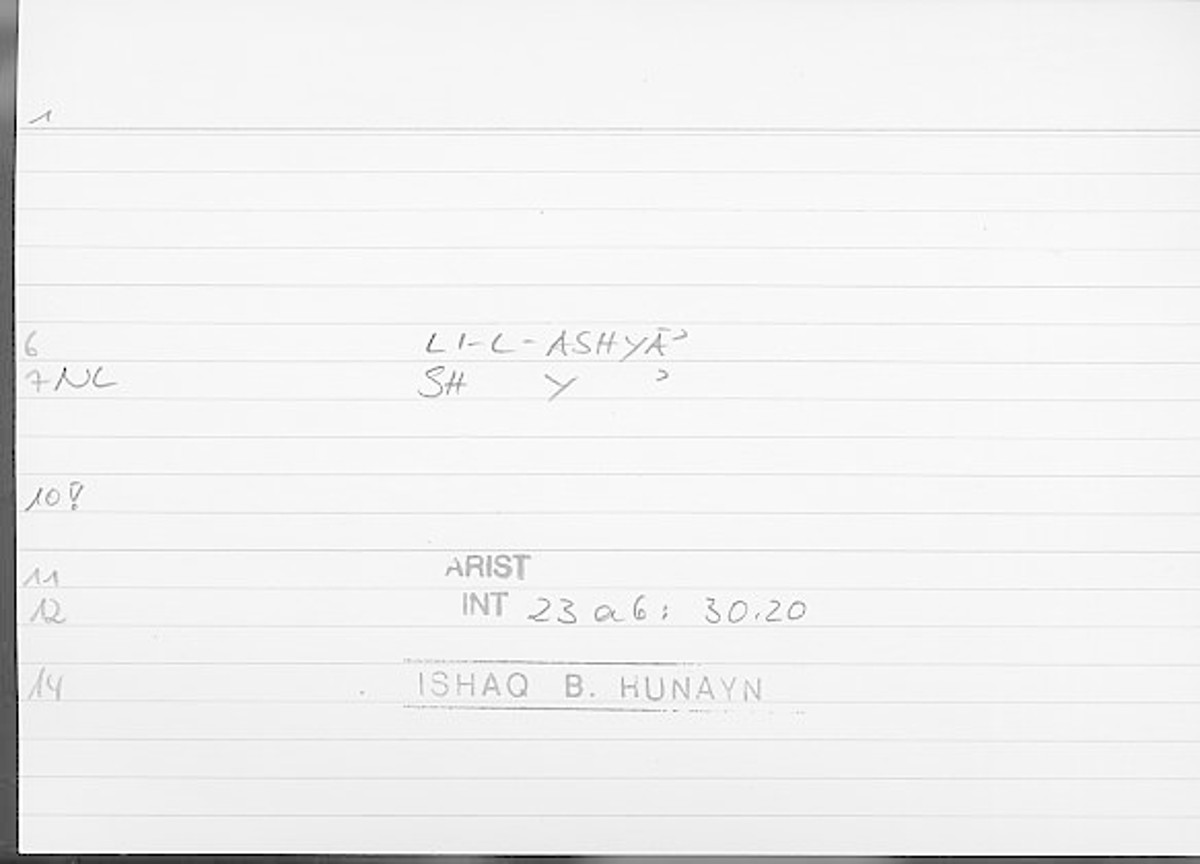 1
6 LI-L-ASHYĀʾ
7 NL SH Y ʾ
10 !
11 ARIST
12 INT 23 a6: 30.20
14 ISHAQ B. HUNAYN